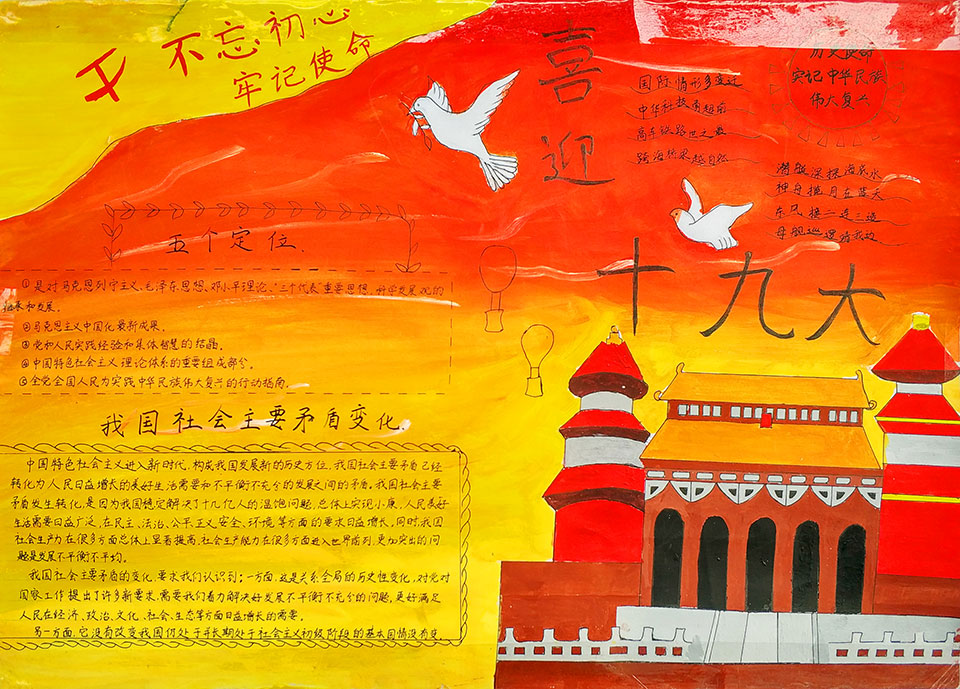 不忘初心
牢记使命
喜迎
十九大
国际情形多变迁
中华科技有超前
高车铁路世之最
跨海桥梁越自然
历史使命
实记中华民族
伟大复兴
潜艇深探海底水
神舟揽月在蓝天
东风接二连三竣
母舰巡逻
五个定位.
①是对马克思列宁主义、毛泽东思想、邓小平理论、“三个代表”重要思想、科学发展观的
继承和发展。
②马克思主义中国化最新成果。
③党和人民实践经验和集体智慧的结晶。
④中国特色社会主义理论体系的重要组成部分。
⑤全党全国人民为实践中华民族伟大复兴的行动指南。
我国社会主要矛盾变化.
中国特色社会主义进入新时代,构成我国发展新的历史方位,我国社会主要矛盾已经
转化为人民日益增长的美好生活需要和不平衡不充分的发展之间的矛盾。我国社会主要
矛盾发生转化,是因为我国稳定解决了十几亿人的温饱问题,总体上实现小康,人民美好
生活需要日益广泛,在民主、法治、公平、正义、安全、环境等方面的要求日益增长,同时我国
社会生产力在很多方面总体上显着提高,社会生产能力在很多方面进入世界前列,更加突出的问
题是发展不平衡不平均。
我国社会主要矛盾的变化,要求我们认识到:一方面,这是关系全局的历史性变化,对党对
国家工作提出了许多新要求,需要我们着力解决好发展不平衡不充分的问题,更好满足
人民在经济、政治、文化、社会、生态等方面日益增长的需要。
另一方面,它没有改变我国仍处于并长期处于社会主义初级阶段的基本国情没有变.